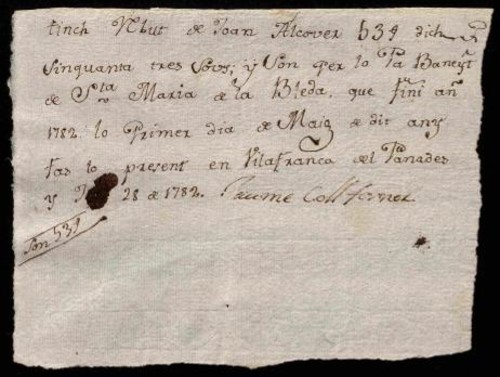 tinch Rebut de Joan Alcover 53 ł dich
Sinquanta tres Sous; y Son per lo
de Sta Maria de la Bleda, que fini añ
1782. lo Primer dia de Maig de dit any
fas lo present en Vilafranca del Panades
y 28 de 1782. Jaume Coll forner
Son 53 ł